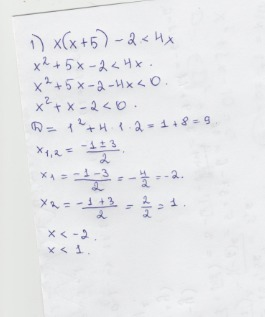 1) x(x+5) - 2 < 4x
x² + 5x - 2 < 4x.
x² + 5x - 2 - 4x < 0.
x² + x - 2 < 0.
D = 1² + 4 · 1 · 2 = 1 + 8 = 9
x₁,₂ = (-1 ± 3)/2.
x₁ = (-1 - 3)/2 = -4/2 = -2.
x₂ = (-1 + 3)/2 = 2/2 = 1.
x < -2.
x < 1.